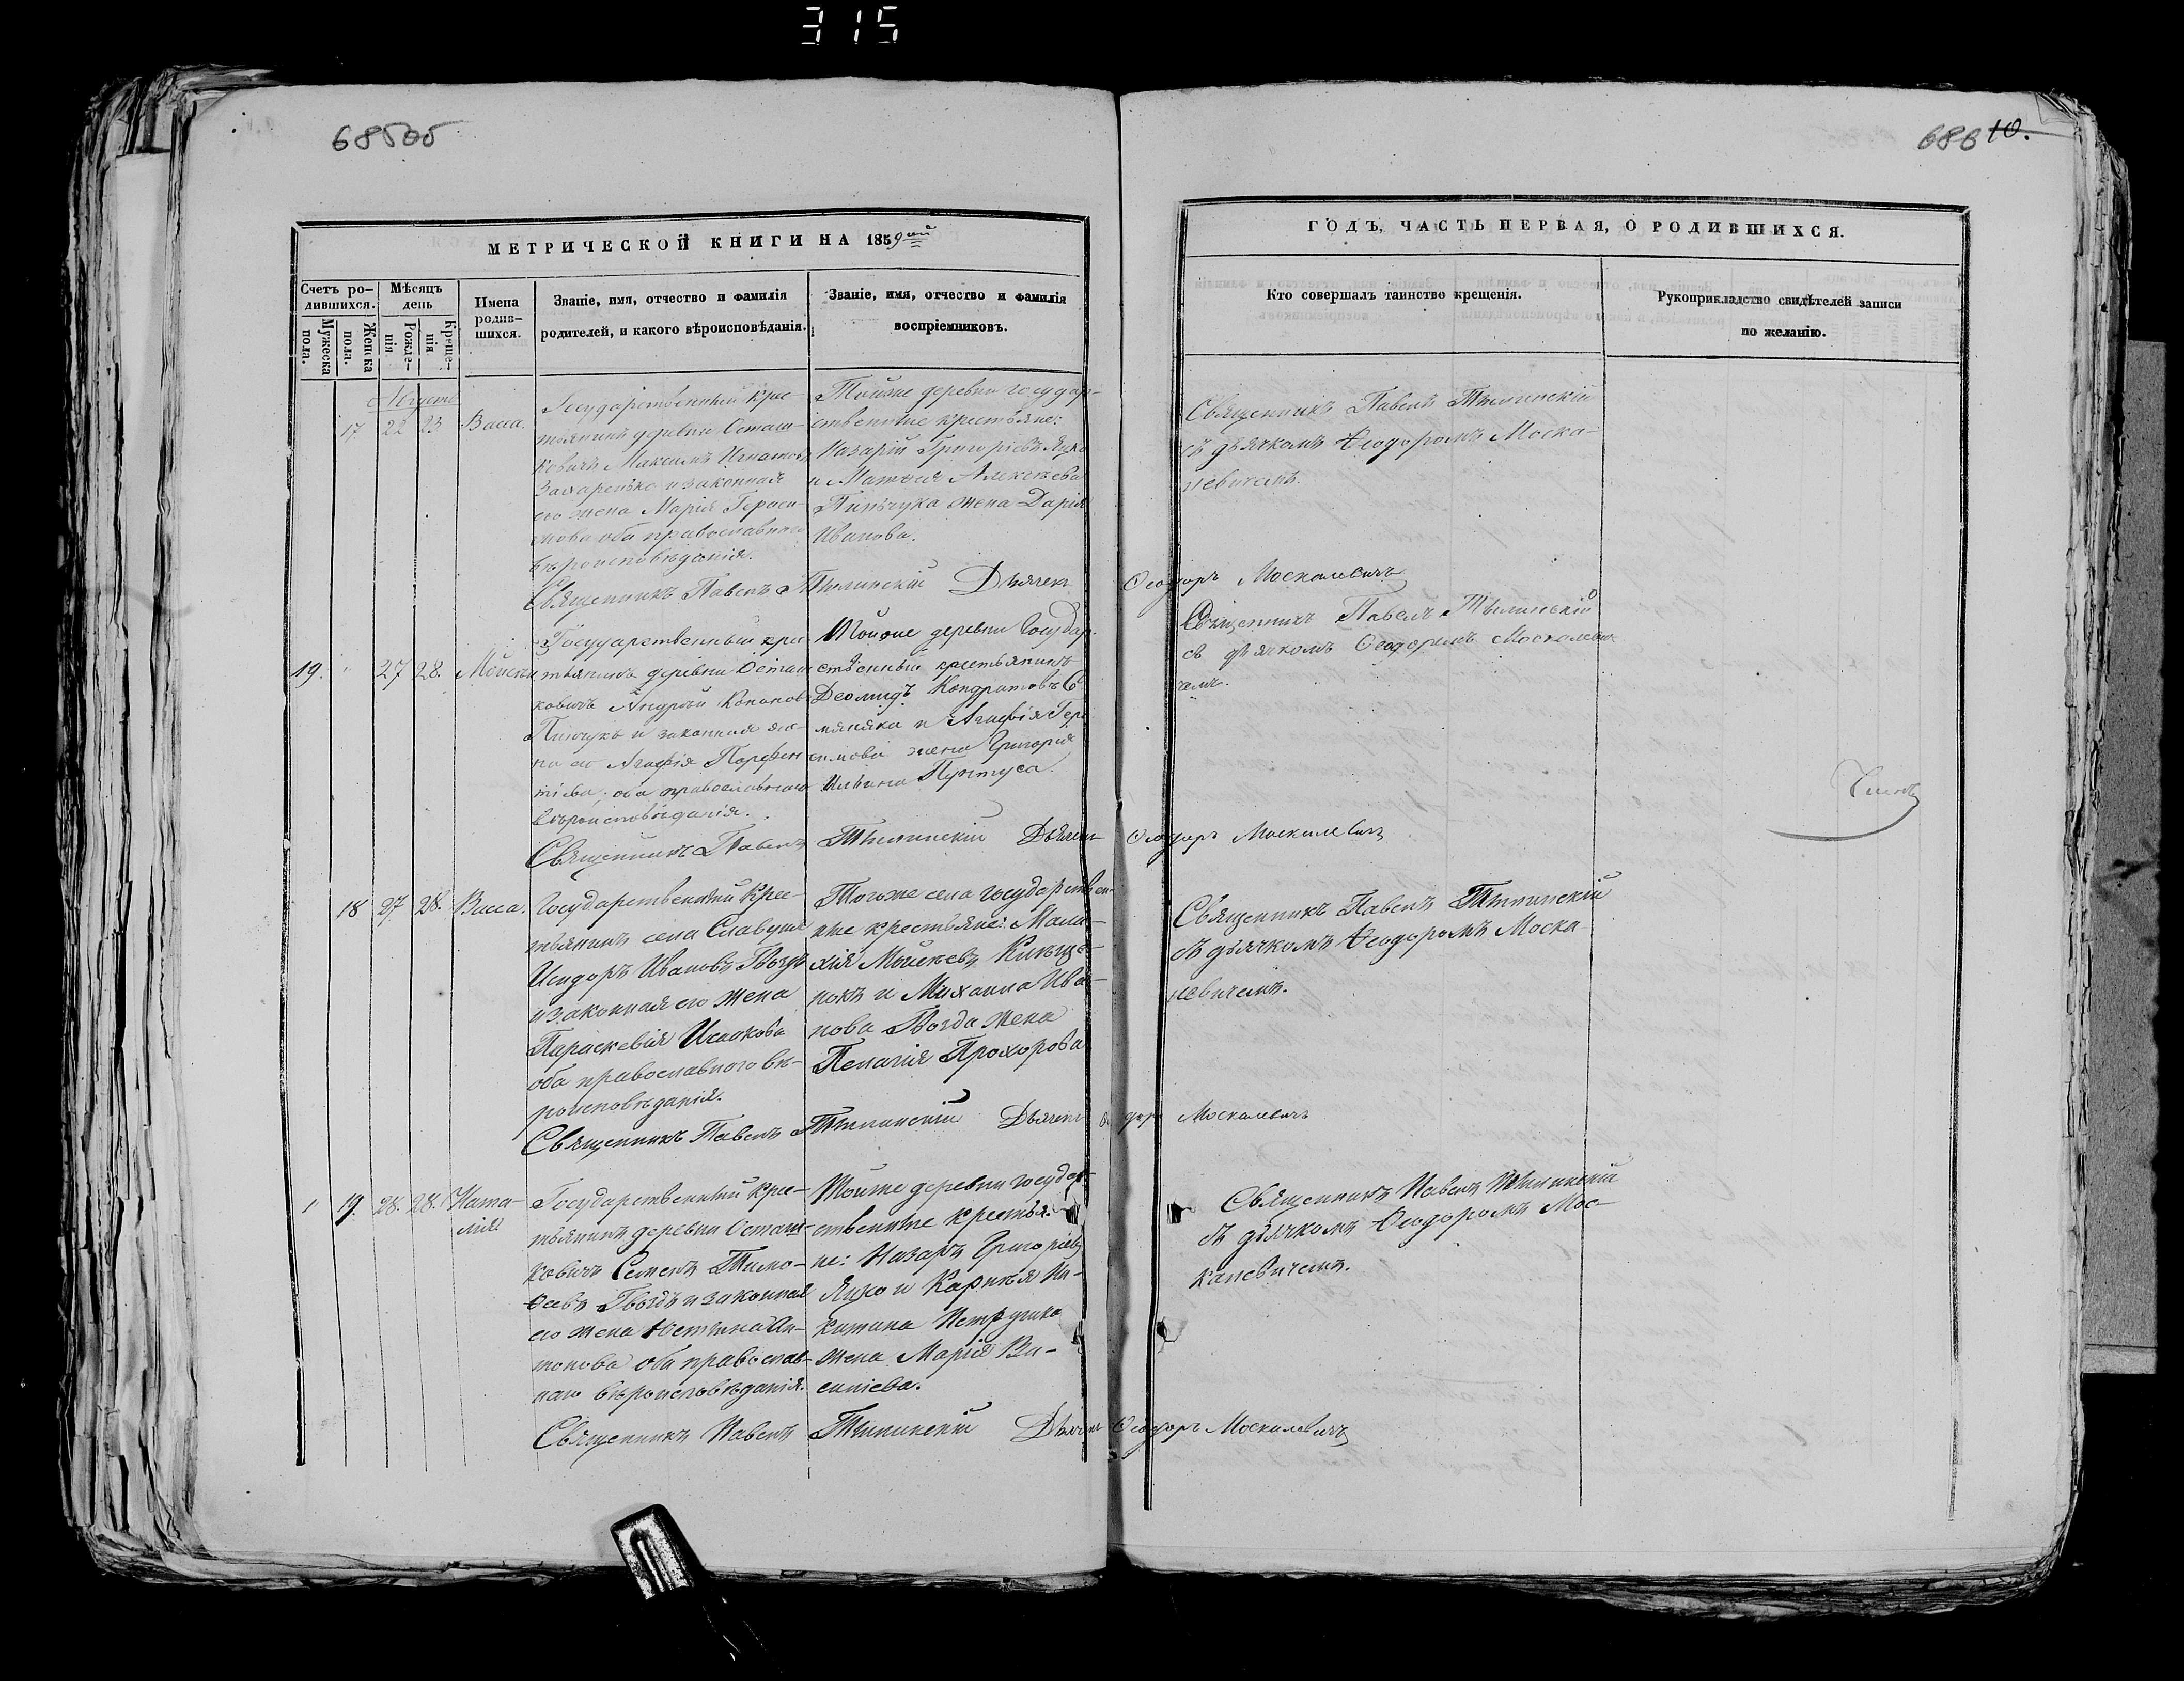 315
68505
686 10.
МЕТРИЧЕСКОЙ КНИГИ НА 1859ый
ГОДЪ, ЧАСТЬ ПЕРВАЯ, О РОДИВШИХСЯ.
Счетъ ро-
дившихся.
Мужеска
пола.
Женска
пола.
Мѣсяцъ
день
Рожде-
нія
Креще-
нія
Имена
родив-
шихся.
Званіе, имя, отчество и фамилія
родителей, и какого вѣроисповѣданія.
Званіе, имя, отчество и фамилія
воспріемниковъ.
Кто совершалъ таинство крещенія.
Рукоприкладство свидѣтелей записи
по желанію.
Августъ
17 22 23 Васса.
Государственный крес-
тьянинъ деревни Осташ-
ковичъ Максимъ Игнатовъ
Захаренко и законная
его жена Марія Гераси-
мова оба православнаго
вѣроисповѣданія.
Тойже деревни государ-
ственные крестьяне:
Назарій Григоріевъ Яцко
и Матвея Алексѣева
Пинчука жена Дарія
Иванова.
Священникъ Павелъ
съ дьячкомъ Ѳеодоромъ Моска-
левичемъ.
Священникъ Павелъ Дьячекъ Ѳеодоръ Москалевичъ
19. 27 28. Моисей
Государственный крес-
тьянинъ деревни Осташ-
ковичъ Андрей Кононовъ
Пинчукъ и законная же-
на его Агафія Парфен-
тіева, оба православнаго
вѣроисповѣданія.
Тойже деревни Государ-
ственный крестьянинъ
Деомидъ Кондратовъ
и Агафія Гера-
симова жена Григорія
Ильина Пунтуса.
Священникъ Павелъ
съ дьячкомъ Ѳеодоромъ Москалеви-
чемъ.
Священникъ Павелъ Дьячекъ Ѳеодоръ Москалевичъ
18 27 28. Васса.
Государственный крес-
тьянинъ села
Исидоръ Ивановъ Гвоздь
и законная его жена
Параскевія Исаакова
оба православнаго вѣ-
роисповѣданія.
Тогоже села государствен-
ные крестьяне: Мала-
хія Моисеевъ
и Михаила Ива-
нова Гвозда жена
Пелагія Прохорова
Священникъ Павелъ
съ дьячкомъ Ѳеодоромъ Моска-
левичемъ.
Священникъ Павелъ Дьячекъ Москалевичъ
19. 28. 28. Ната-
лія
Государственный крес-
тьянинъ деревни Осташ-
ковичъ Семенъ Тимо-
ѳеевъ Гвоздь и законная
его жена Юстина Ан-
тонова оба православ-
наго вѣроисповѣданія.
Тойже деревни государ-
ственные крестья-
не: Назаръ Григоріевъ
Яцко и Корнѣя Ни-
китина Петручика
жена Марія Ва-
силіева.
Священникъ Павелъ
съ дьячкомъ Ѳеодоромъ Мос-
калевичемъ.
Священникъ Павелъ Дьячекъ Ѳеодоръ Москалевичъ